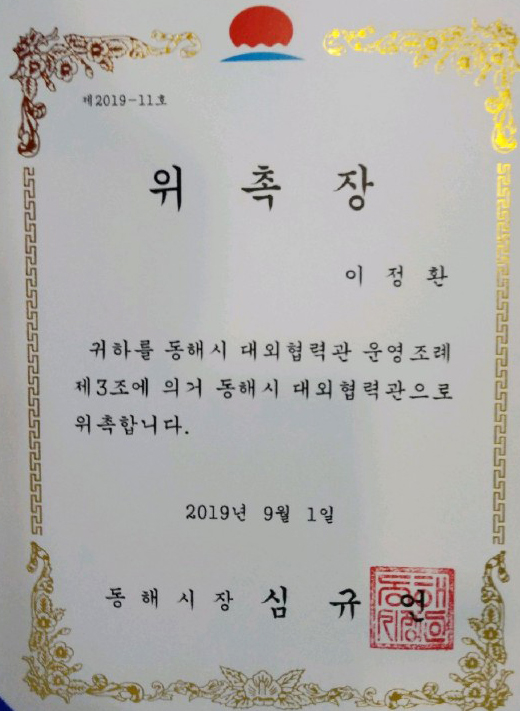 제2019-11호
위 촉 장
이 정 환
귀하를 동해시 대외협력관 운영조례
제3조에 의거 동해시 대외협력관으로
위촉합니다.
2019년 9월 1일
동 해 시 장 심 규 언